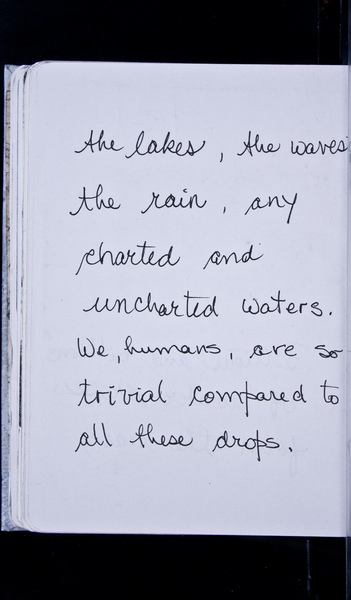 the lakes, the waves
the rain, any
charted and
uncharted waters.
We, humans, are so
trivial compared to
all these drops.